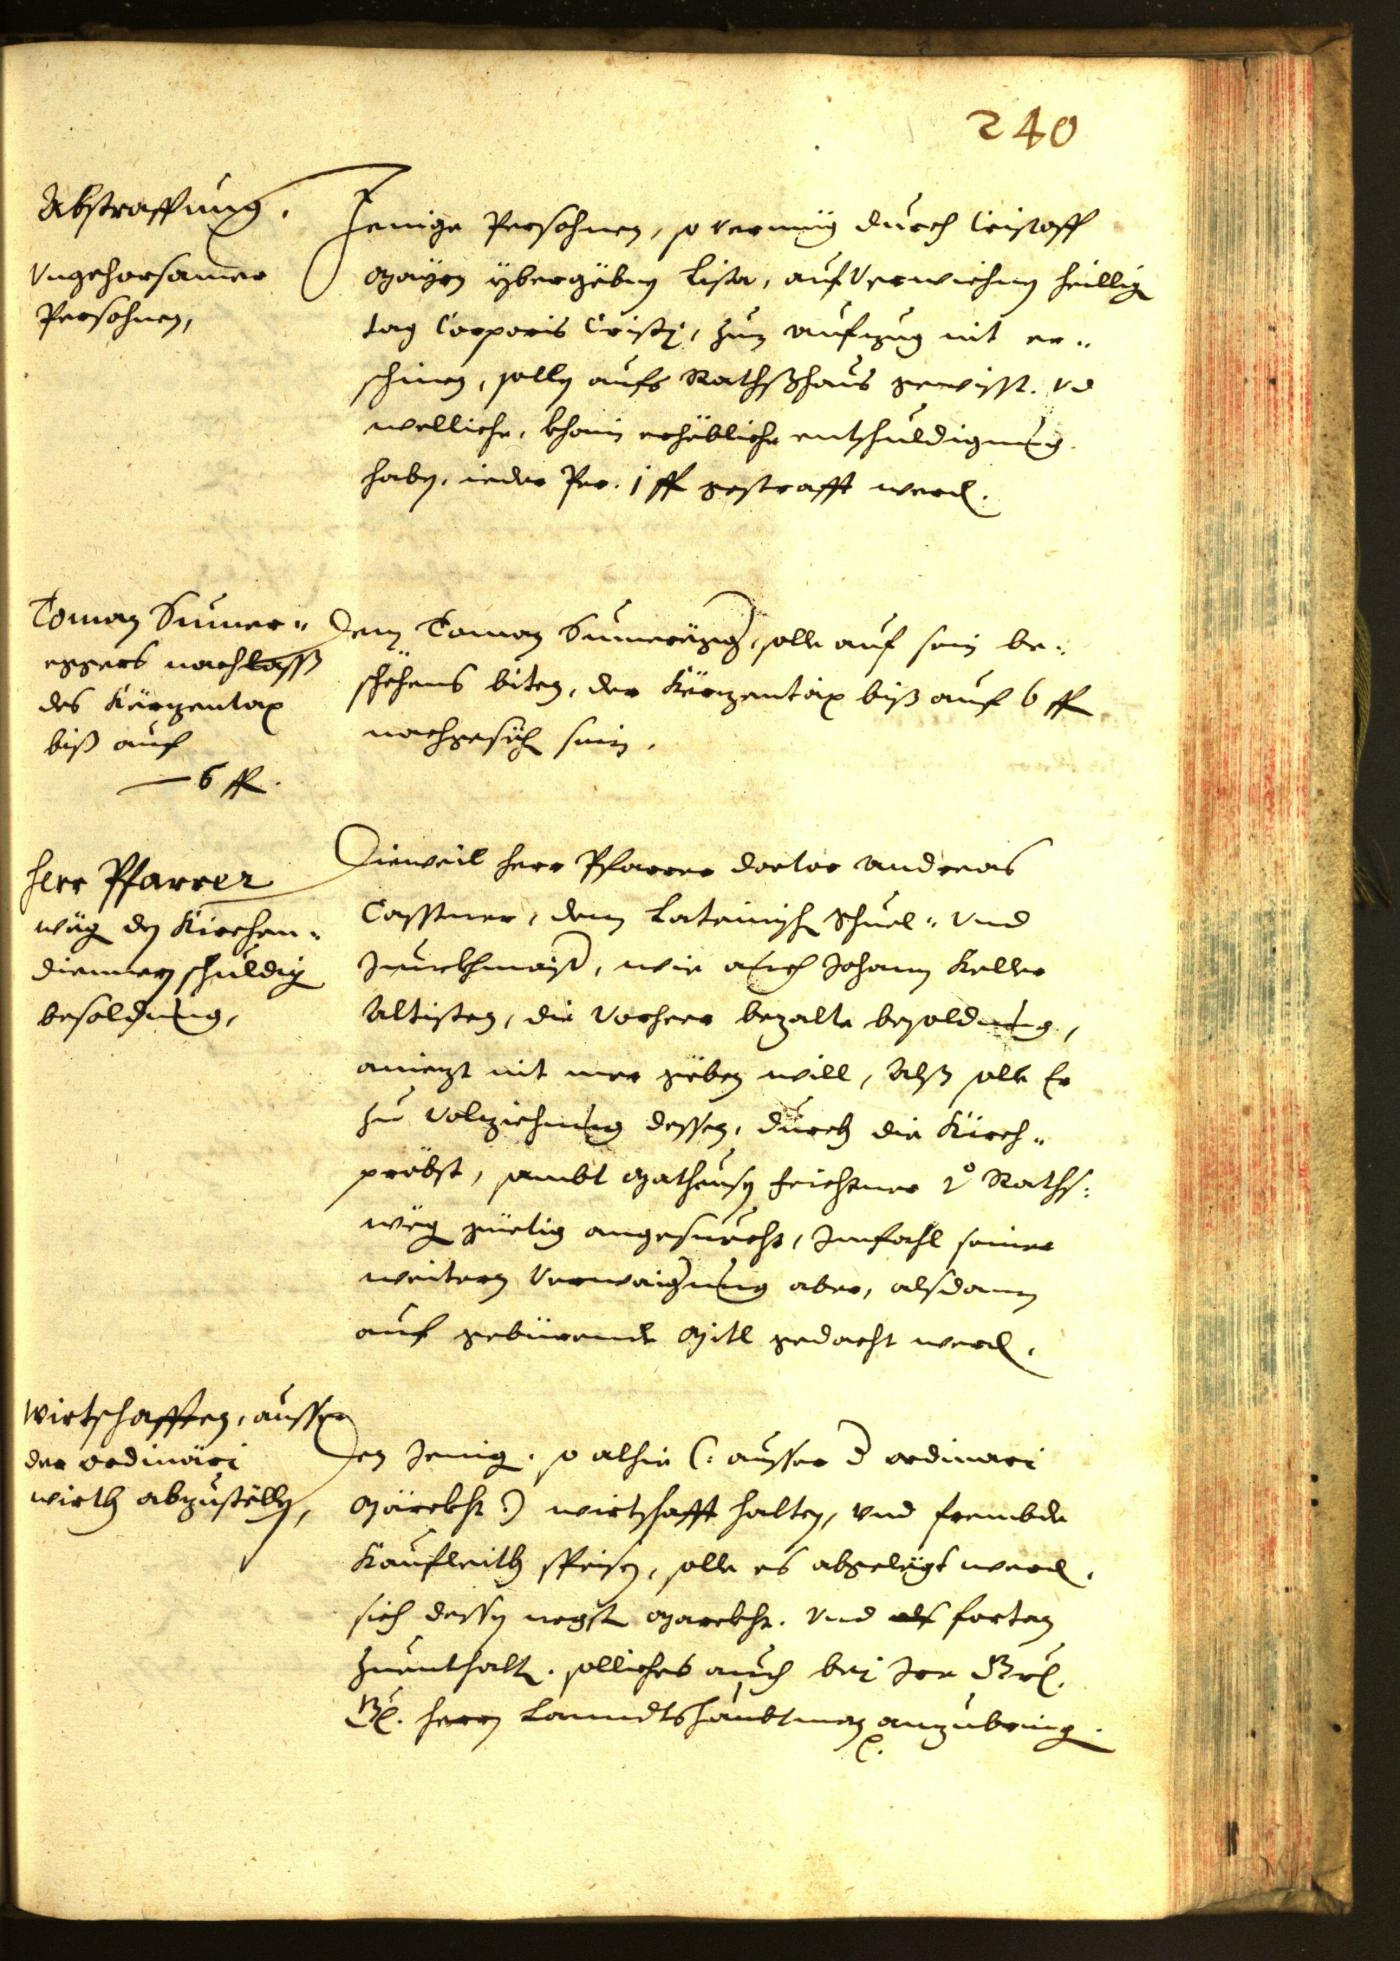 240
Abstraffung
Ungehorsamer
Persohnen,
Jenige Persohnen, so vermüg durch Cristoff
Mayrn ybergebnen Lista, auf verwichnen heillig
tag Corporis Cristy, zum aufzug nit er„
schinen, sollen aufs Rathshaus gewisst. vnd
welliche, khain erhebliche entschuldigung
haben, ieder Per. 1 ff gestrafft werden.
Toman Sumer„
eggers nachlass
des Kerzentax
biß auf
— 6 ff.
Dem Toman Sumeregger, solle auf sein be„
schehens biten, der Kerzentax biß auf 6 ff
nachgesehen sein.
Herr Pfarrer
weg den Kirchen„
dienern schuldig
besoldung,
Dieweil herr Pfarrer doctor Andreas
Casstner, dem Lateinisch Schuel„ vnd
Junckhmaister, wie auch Johann Keller
Altisten, die vorheer bezalte besoldung,
aniezt nit mer geben will, Alß solle Er
zu volziehung dessen, durch die Kirch„
pröbst, sambt Matheusen Feichtner v° Raths„
weg güetig angesuecht, Imfahl seiner
weitern Verwaigerung aber, alsdann
auf gebürende Mitl gedacht werden.
Wirtschafften, ausser
der ordinari
wirth abzustellen,
Den Jenigen. so alhie (: ausser der ordinari
Märckht :) wirtschafft halten, vnd frembde
Kaufleith speisen, solle es abgelegt werden.
sich dessen negst Marckht. vnd als fortan
zuenthalten. solliches auch bei Irer
Herrn Lanndtshaubtman anzubringen.